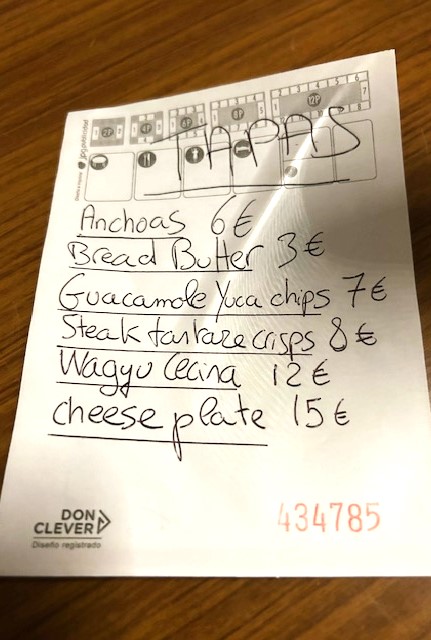 TAPAS
Anchoas 6€
Bread Butter 3€
Guacamole Yuca chips 7€
Steak tartare crisps 8€
Wagyu Cecina 12€
cheese plate 15€
DON
CLEVER
Diseño registrado
434785